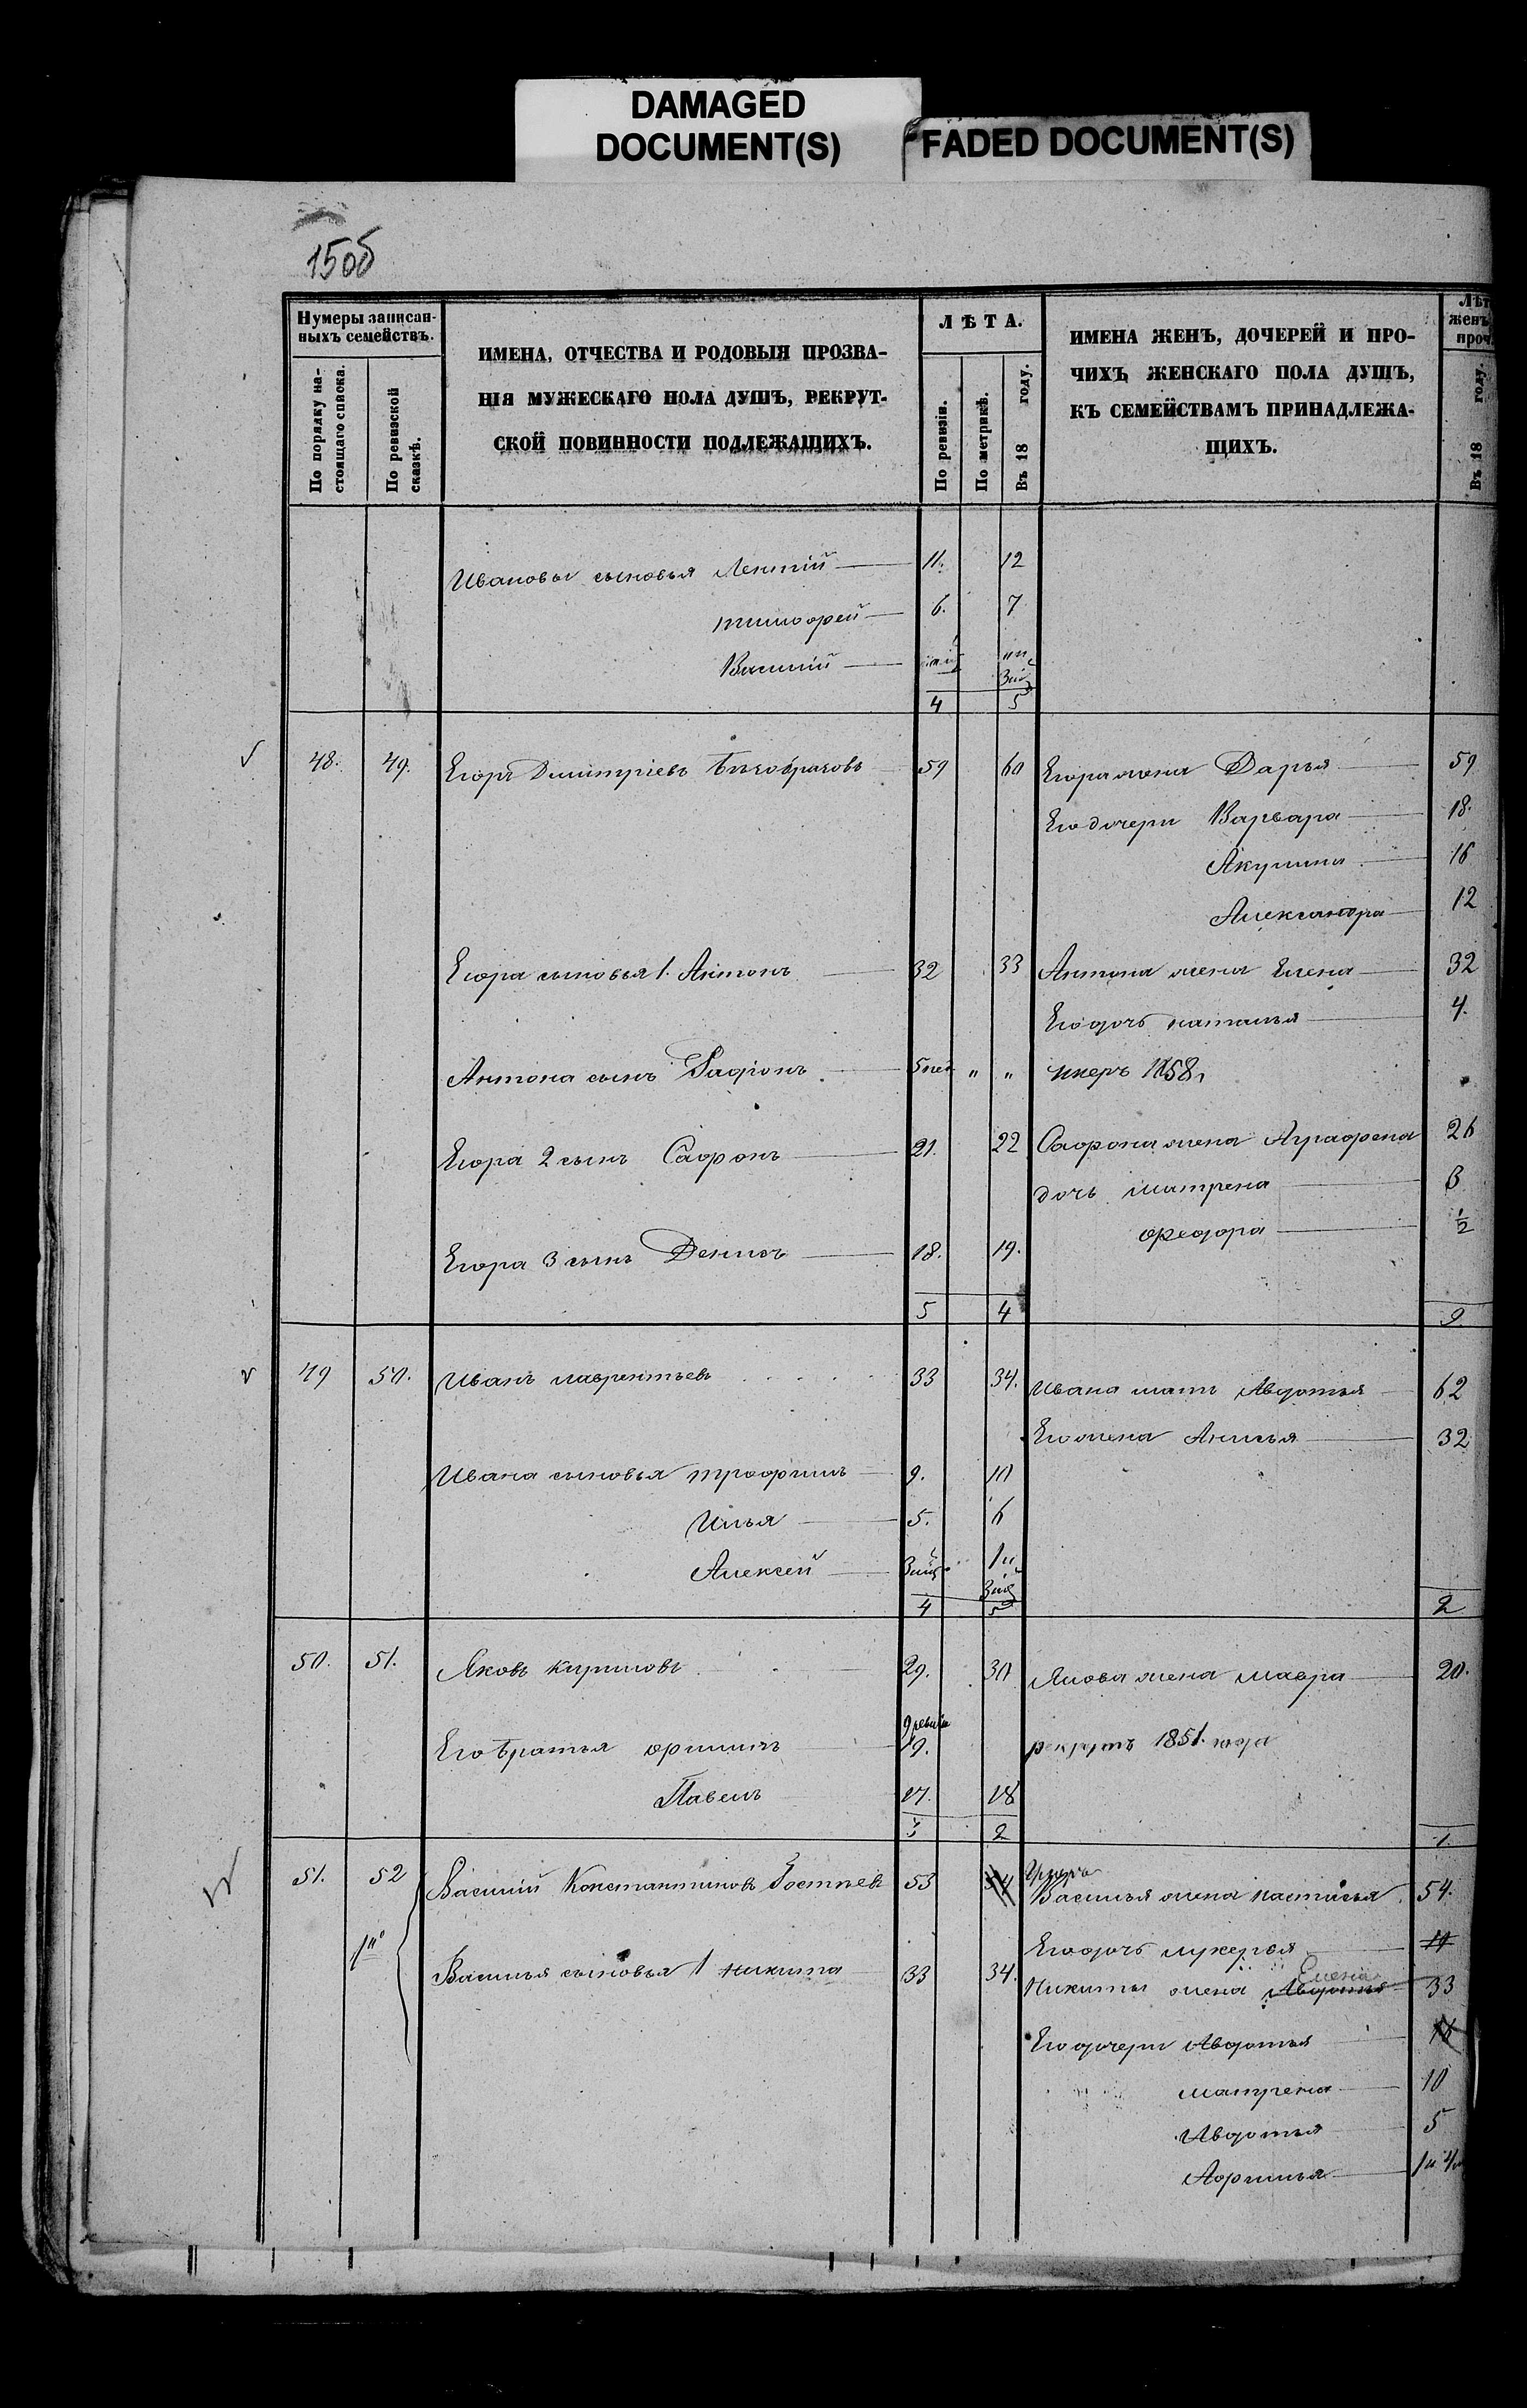 DAMAGED
DOCUMENT(S)
FADED DOCUMENT(S)
150б
Нумеры записан-
ныхъ семействъ.
По порядку на-
стоящаго списка.
По ревизской
сказкѣ.
ИМЕНА, ОТЧЕСТВА И РОДОВЫЯ ПРОЗВА-
НІЯ МУЖЕСКАГО ПОЛА ДУШЪ, РЕКРУТ-
СКОЙ ПОВИННОСТИ ПОДЛЕЖАЩИХЪ.
ЛѢТА.
По ревизіи.
По метрикѣ.
Въ 18 году.
ИМЕНА ЖЕНЪ, ДОЧЕРЕЙ И ПРО-
ЧИХЪ ЖЕНСКАГО ПОЛА ДУШЪ,
КЪ СЕМЕЙСТВАМЪ ПРИНАДЛЕЖА-
ЩИХЪ.
Лѣт
женъ
проч.
Въ 18 году.
Ивановы сыновья 11. 12
тимофей 6. 7
Василий
4 5
48. 49. Егоръ Дмитріевъ 59 60 Егора жена Дарья 59
Его дочери Варвара 18.
Акулина 16
Александра 12
Егора сыновья 1. Антонъ 32 33 Антона жена Елена 32
Его дочь наталья 4.
Антона сынъ 5 нед " " умеръ 1858
Егора 2 сынъ Сафонъ 21. 22 Сафона жена Аграфена 26
дочь матрена 3
федора 1/2
Егора 3 сынъ Денисъ 18. 19.
5 4 9
49 50. Иванъ лаврентьевъ 33 34. Ивана мать Авдотья 62
Его жена Анисья 32
Ивана сыновья трофимъ 9. 10
Илья 5. 6
Алексей
4 5 2
50. 51. Яковъ кириловъ 29. 30 Якова жена мавра 20.
Его братья 19. рекрутъ 1851. года
Павелъ 17. 18
3 2 1.
51. 52 Василий Константиновъ 53 54 Василья жена настасья 54.
Его дочь лукерья 19
Василья сыновья 1 никита 33 34. Никиты жена Авдотья Елена 33
Его дочери Авдотья 16
матрена 10
Авдотья 5
Афимья